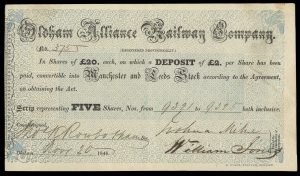 Oldham Alliance Railway Company.
No.
(REGISTERED PROVISIONALLY.)
In Shares of £20. each, on which a DEPOSIT of £2. per Share has been
paid, convertible into Manchester and Leeds Stock according to the Agreement,
on obtaining the Act.
Scrip representing FIVE Shares, Nos. from 9221 to 9225 both inclusive.
William Jones
Nov. 20 1846.